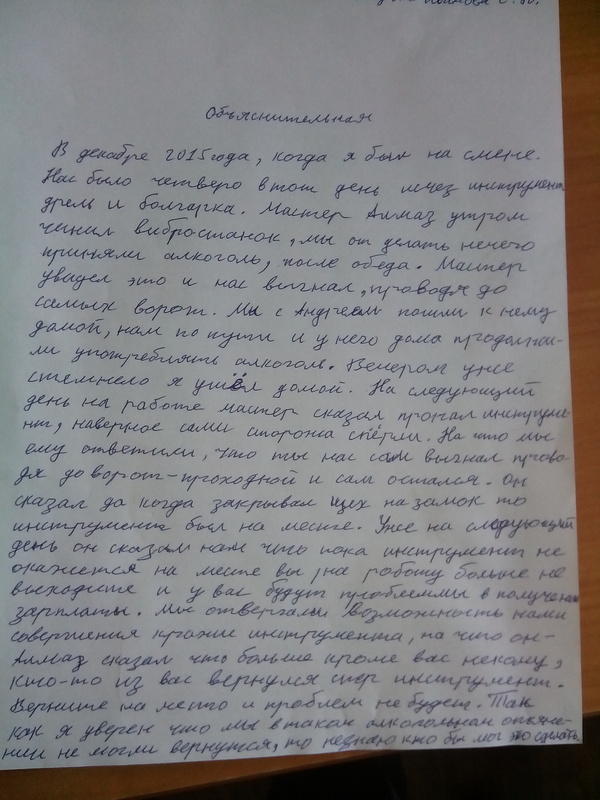 Объяснительная
В декабре 2015 года, когда я был на смене.
Нас было четверо в тот день исчез инструмент
дрель и болгарка. Мастер Алмаз утром
чинил вибростанок, мы от делать нечего
приняли алкоголь, после обеда. Мастер
увидел это и нас выгнал, проводя до
самых ворот. Мы с Андреем пошли к нему
домой, нам по пути и у него дома продолжи-
ли употреблять алкоголь. Вечером уже
стемнело я ушёл домой. На следующий
день на работе мастер сказал пропал инструме-
нт, наверное сами сторожа спёрли. На что мы
ему ответили, что ты нас сам выгнал прово-
дя до ворот-проходной и сам остался. Он
сказал да когда закрывал цех на замок то
инструмент был на месте. Уже на следующий
день он сказал нам что пока инструмент не
окажется на месте вы на работу больше не
выходите и у вас будут проблеммы в получении
зарплаты. Мы отвергали возможность нами
совершения кражи инструмента, на что он-
Алмаз сказал что больше кроме вас некому,
кто-то из вас вернулся спер инструмент.
Верните на место и проблем не будет. Так
как я уверен что мы в таком алкогольном опьяне-
нии не могли вернутся, то незнаю кто бы мог это сделать.